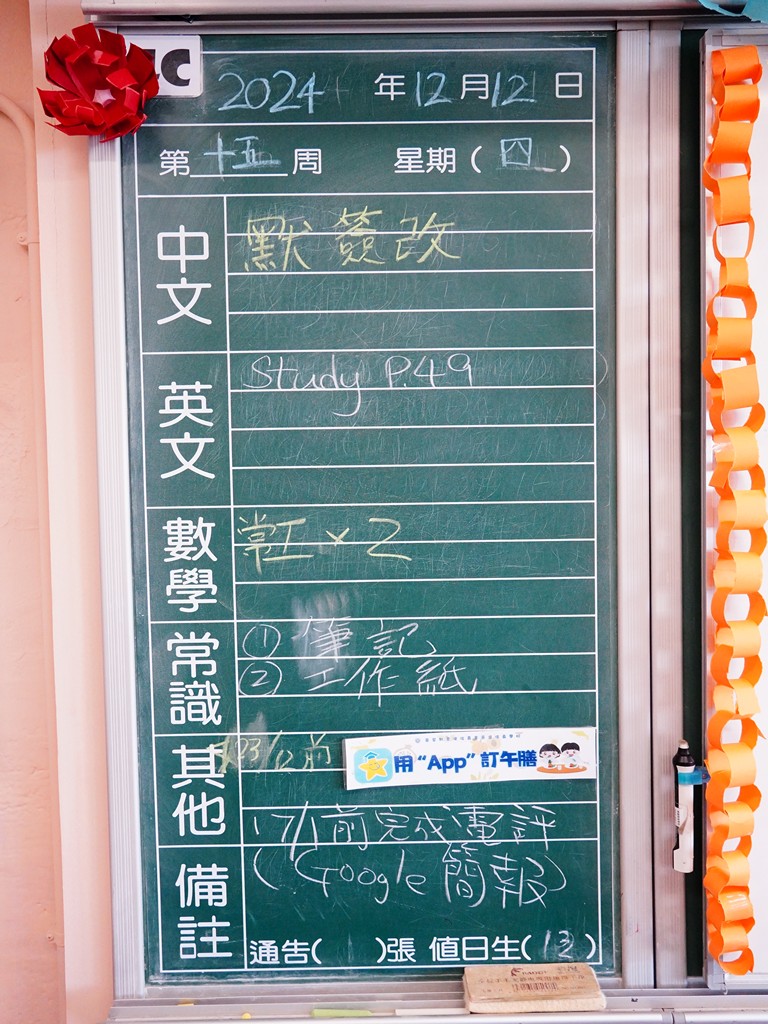 C
2024 年 12 月 12 日
第 十五 周 星期 ( 四 )
中文
默 簽改
英文
Study P.49
數學
堂工 × 2
常識
① 筆記
② 工作紙
其他
23/12 前
用 “App” 訂午膳
17/1前完成電評
備註
( Google 簡報 )
通告( )張 值日生( 13 )